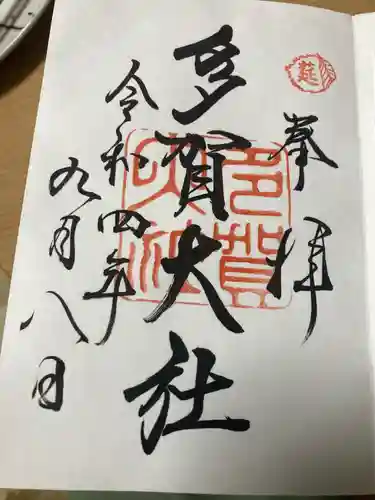 奉拝
多賀大社
令和四年
九月八日
多賀大社